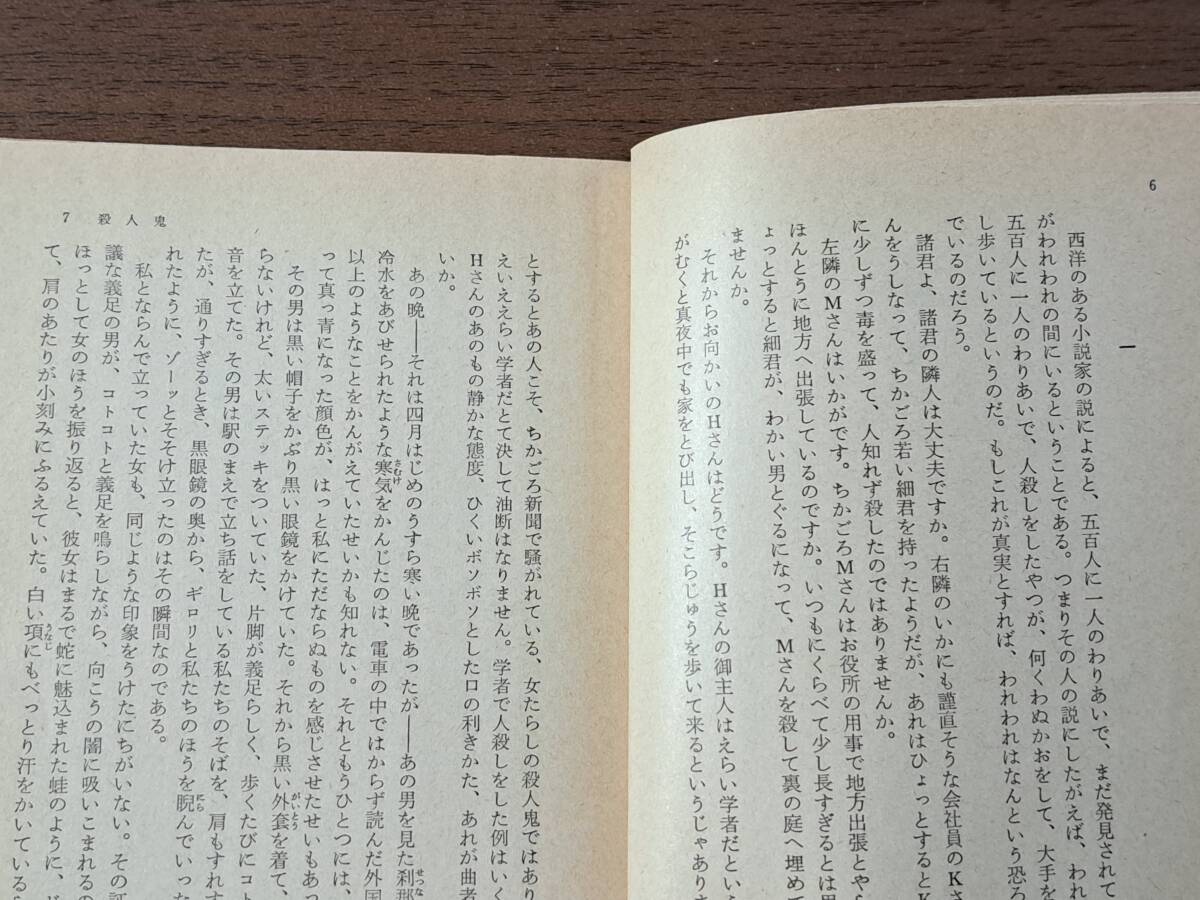 6
一
西洋のある小説家の説によると、五百人に一人のわりあいで、まだ発見されて
がわれわれの間にいるということである。つまりその人の説にしたがえば、われ
五百人に一人のわりあいで、人殺しをしたやつが、何くわぬかおをして、大手を
し歩いているというのだ。もしこれが真実とすれば、われわれはなんという恐ろ
でいるのだろう。
諸君よ、諸君の隣人は大丈夫ですか。右隣のいかにも謹直そうな会社員のKさ
んをうしなって、ちかごろ若い細君を持ったようだが、あれはひょっとするとK
に少しずつ毒を盛って、人知れず殺したのではありませんか。
左隣のMさんはいかがです。ちかごろMさんはお役所の用事で地方出張とやら
ほんとうに地方へ出張しているのですか。いつもにくらべて少し長すぎるとは思
ょっとすると細君が、わかい男とぐるになって、Mさんを殺して裏の庭へ埋めて
ませんか。
それからお向かいのHさんはどうです。Hさんの御主人はえらい学者だという
がむくと真夜中でも家をとび出し、そこらじゅうを歩いて来るというじゃありま
7 殺人鬼
とするとあの人こそ、ちかごろ新聞で騒がれている、女たらしの殺人鬼ではあり
えいええらい学者だとて決して油断はなりません。学者で人殺しをした例はいく
Hさんのあのもの静かな態度、ひくいボソボソとした口の利きかた、あれが曲者
いか。
あの晩――それは四月はじめのうすら寒い晩であったが――あの男を見た刹那
冷水をあびせられたような寒気をかんじたのは、電車の中ではからず読んだ外国
以上のようなことをかんがえていたせいかも知れない。それともうひとつには、
って真っ青になった顔色が、はっと私にただならぬものを感じさせたせいもあっ
その男は黒い帽子をかぶり黒い眼鏡をかけていた。それから黒い外套を着て、
らないけれど、太いステッキをついていた、片脚が義足らしく、歩くたびにコト
音を立てた。その男は駅のまえで立ち話をしている私たちのそばを、肩もすれす
たが、通りすぎるとき、黒眼鏡の奥から、ギロリと私たちのほうを睨んでいった
れたように、ゾーッとそそけ立ったのはその瞬間なのである。
私とならんで立っていた女も、同じような印象をうけたにちがいない。その
議な義足の男が、コトコトと義足を鳴らしながら、向こうの闇に吸いこまれるの
ほっとして女のほうを振り返ると、彼女はまるで蛇に魅込まれた蛙のように、
て、肩のあたりが小刻みにふるえていた。白い項にもべっとり汗をかいている